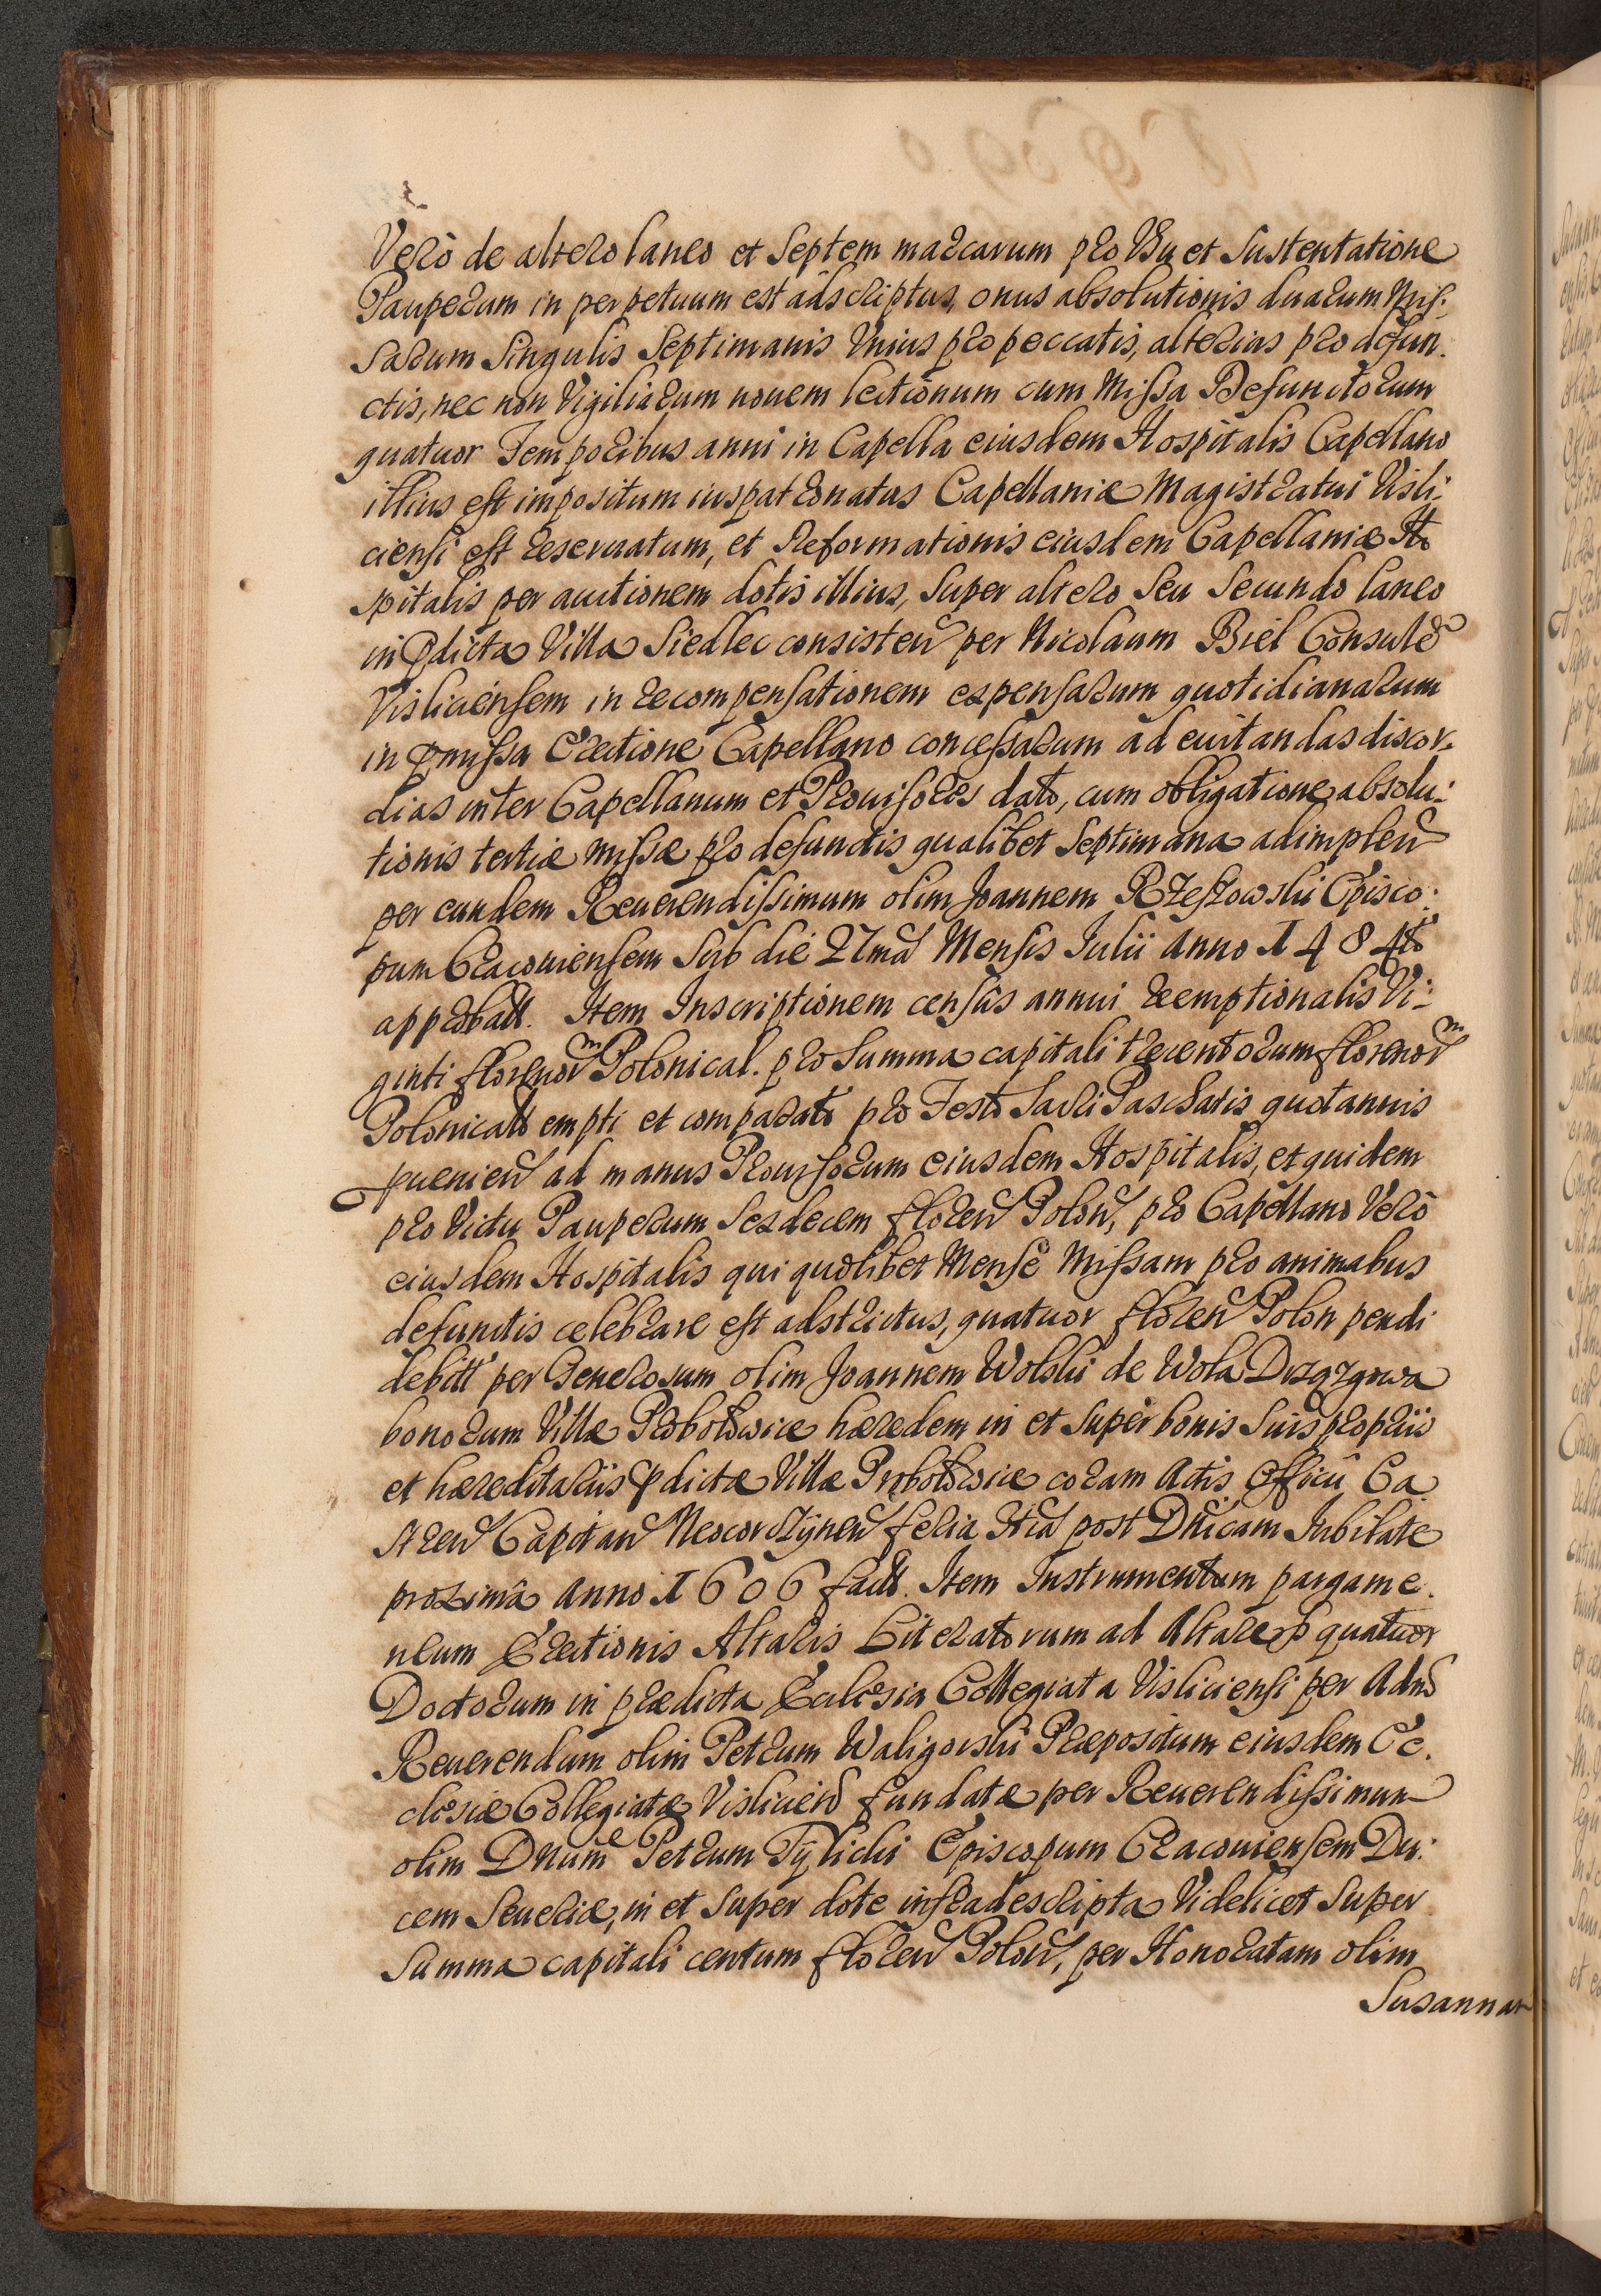 Verò de altero laneo et Septem marcarum pro Vsu et Sustentatione
Pauperum in perpetuum est adscriptus, onus absolutionis duarum Miſ-
sarum Singulis Septimanis Vnius pro peccatis, alterius pro defun-
ctis, nec non Vigiliarum nouem lectionum cum Miſsa Defunctorum
quatuor Temporibus anni in Capella eiusdem Hospitalis Capellano
illius est impositum iuspatronatus Capellaniæ Magistratui Visli-
ciensi est reseruatum, et Reformationis eiusdem Capellaniæ Ho
spitalis per auctionem dotis illius, Super altero Seu Secundo laneo
in pdicta Villa Siedlec consisten per Nicolaum Biel Consulẽ
Visliciensem in recompensationem expensarum quotidianarum
in pmiſsa Erectione Capellano conceſsarum ad euitandas discor-
dias inter Capellanum et Prouisores dato, cum obligatione absolu-
tionis tertiæ miſsæ pro defunctis qualibet Septimana adimplen
per eundem Reuerendiſsimum olim Joannem Rzeszowski Episco-
pum Cracouiensem Sub die 27ma Mensis Julii Anno 1484to
approbatt. Item Inscriptionem censûs annui reemptionalis Vi-
ginti florenorm Polonical. pro Summa capitali trecentorum florenorm
Polonicall empti et comparati pro Festo Sacri Paschatis quotannis
puenien ad manus Prouisorum eiusdem Hospitalis, et quidem
pro Victu Pauperum Sexdecem floren Polon, pro Capellano Verò
eiusdem Hospitalis qui quolibet Mense Miſsam pro animabus
defunctis celebrare est adstrictus, quatuor floren Polon pendi
debitt per Generosum olim Joannem Wolski de Wola Drzązgowa
bonorum Villæ Probołowice hæredem in et super bonis Suis propriis
et hæreditariis pdictæ Villæ Probołowice coram Actis Officii Ca
stren Capitan Neocorczynen feria 4ta post Dnicam Jubilate
proximâ Anno 1606 factt. Item Instrumentum pargame-
neum Erectionis Altaris Literatorum ad Altare p quatuor
Doctorum in prædicta Ecclesia Collegiata Visliciensi per Adm
Reuerendum olim Petrum Waligorski Præpositum eiusdem Ec-
clesiæ Collegiatæ Vislicien fundatæ per Reuerendiſsimum
olim Dnum Petrum Tylicki Episcopum Cracouiensem Du-
cem Seueriæ, in et Super dote infradescripta Videlicet Super
Summa capitali centum floren Polon, per Honoratam olim
Susannam